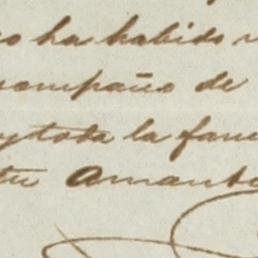 no ha habido n
compaño de
y toda la fam
tu Amante